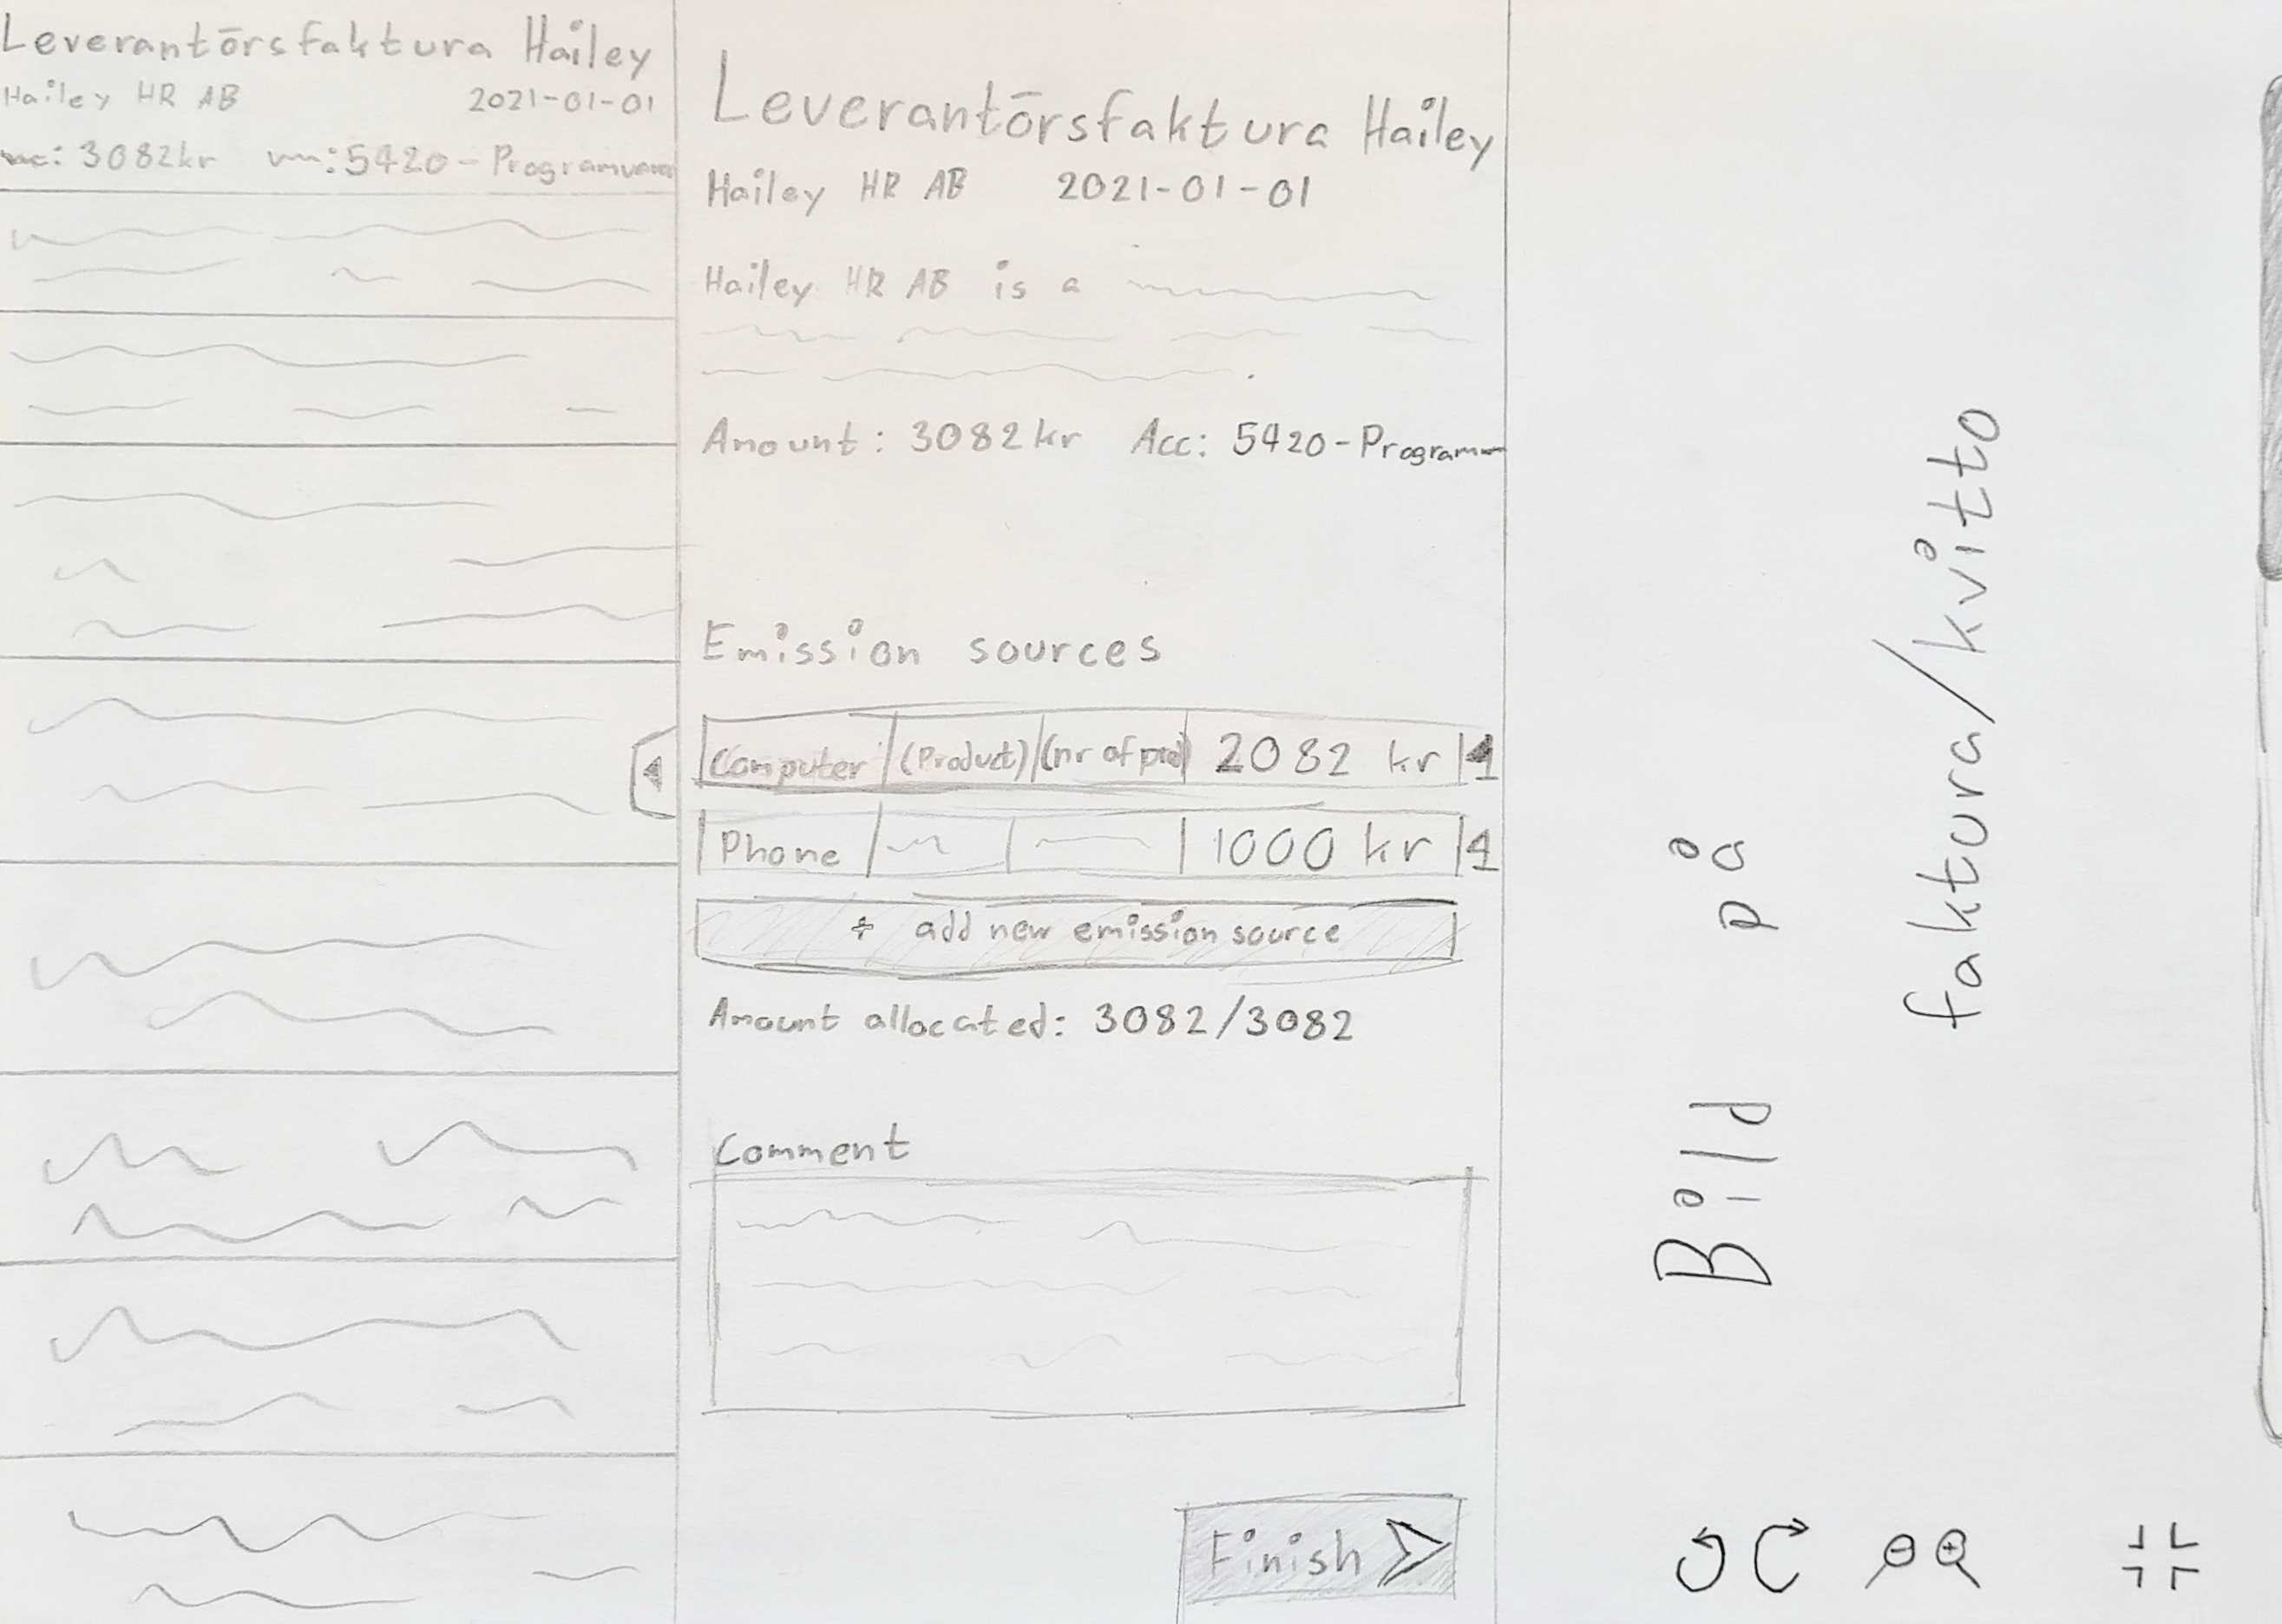 Leverantörsfaktura Hailey
Hailey HR AB 2021-01-01
: 3082kr : 5420-Programvaror
Leverantörsfaktura Hailey
Hailey HR AB 2021-01-01
Hailey HR AB is a
Amount: 3082kr Acc: 5420-Program
Emission sources
Computer (Product) (nr of prod) 2082 kr
Phone 1000 kr
+ add new emission source
Amount allocated: 3082/3082
Comment
Finish
Bild på
faktura/kvitto